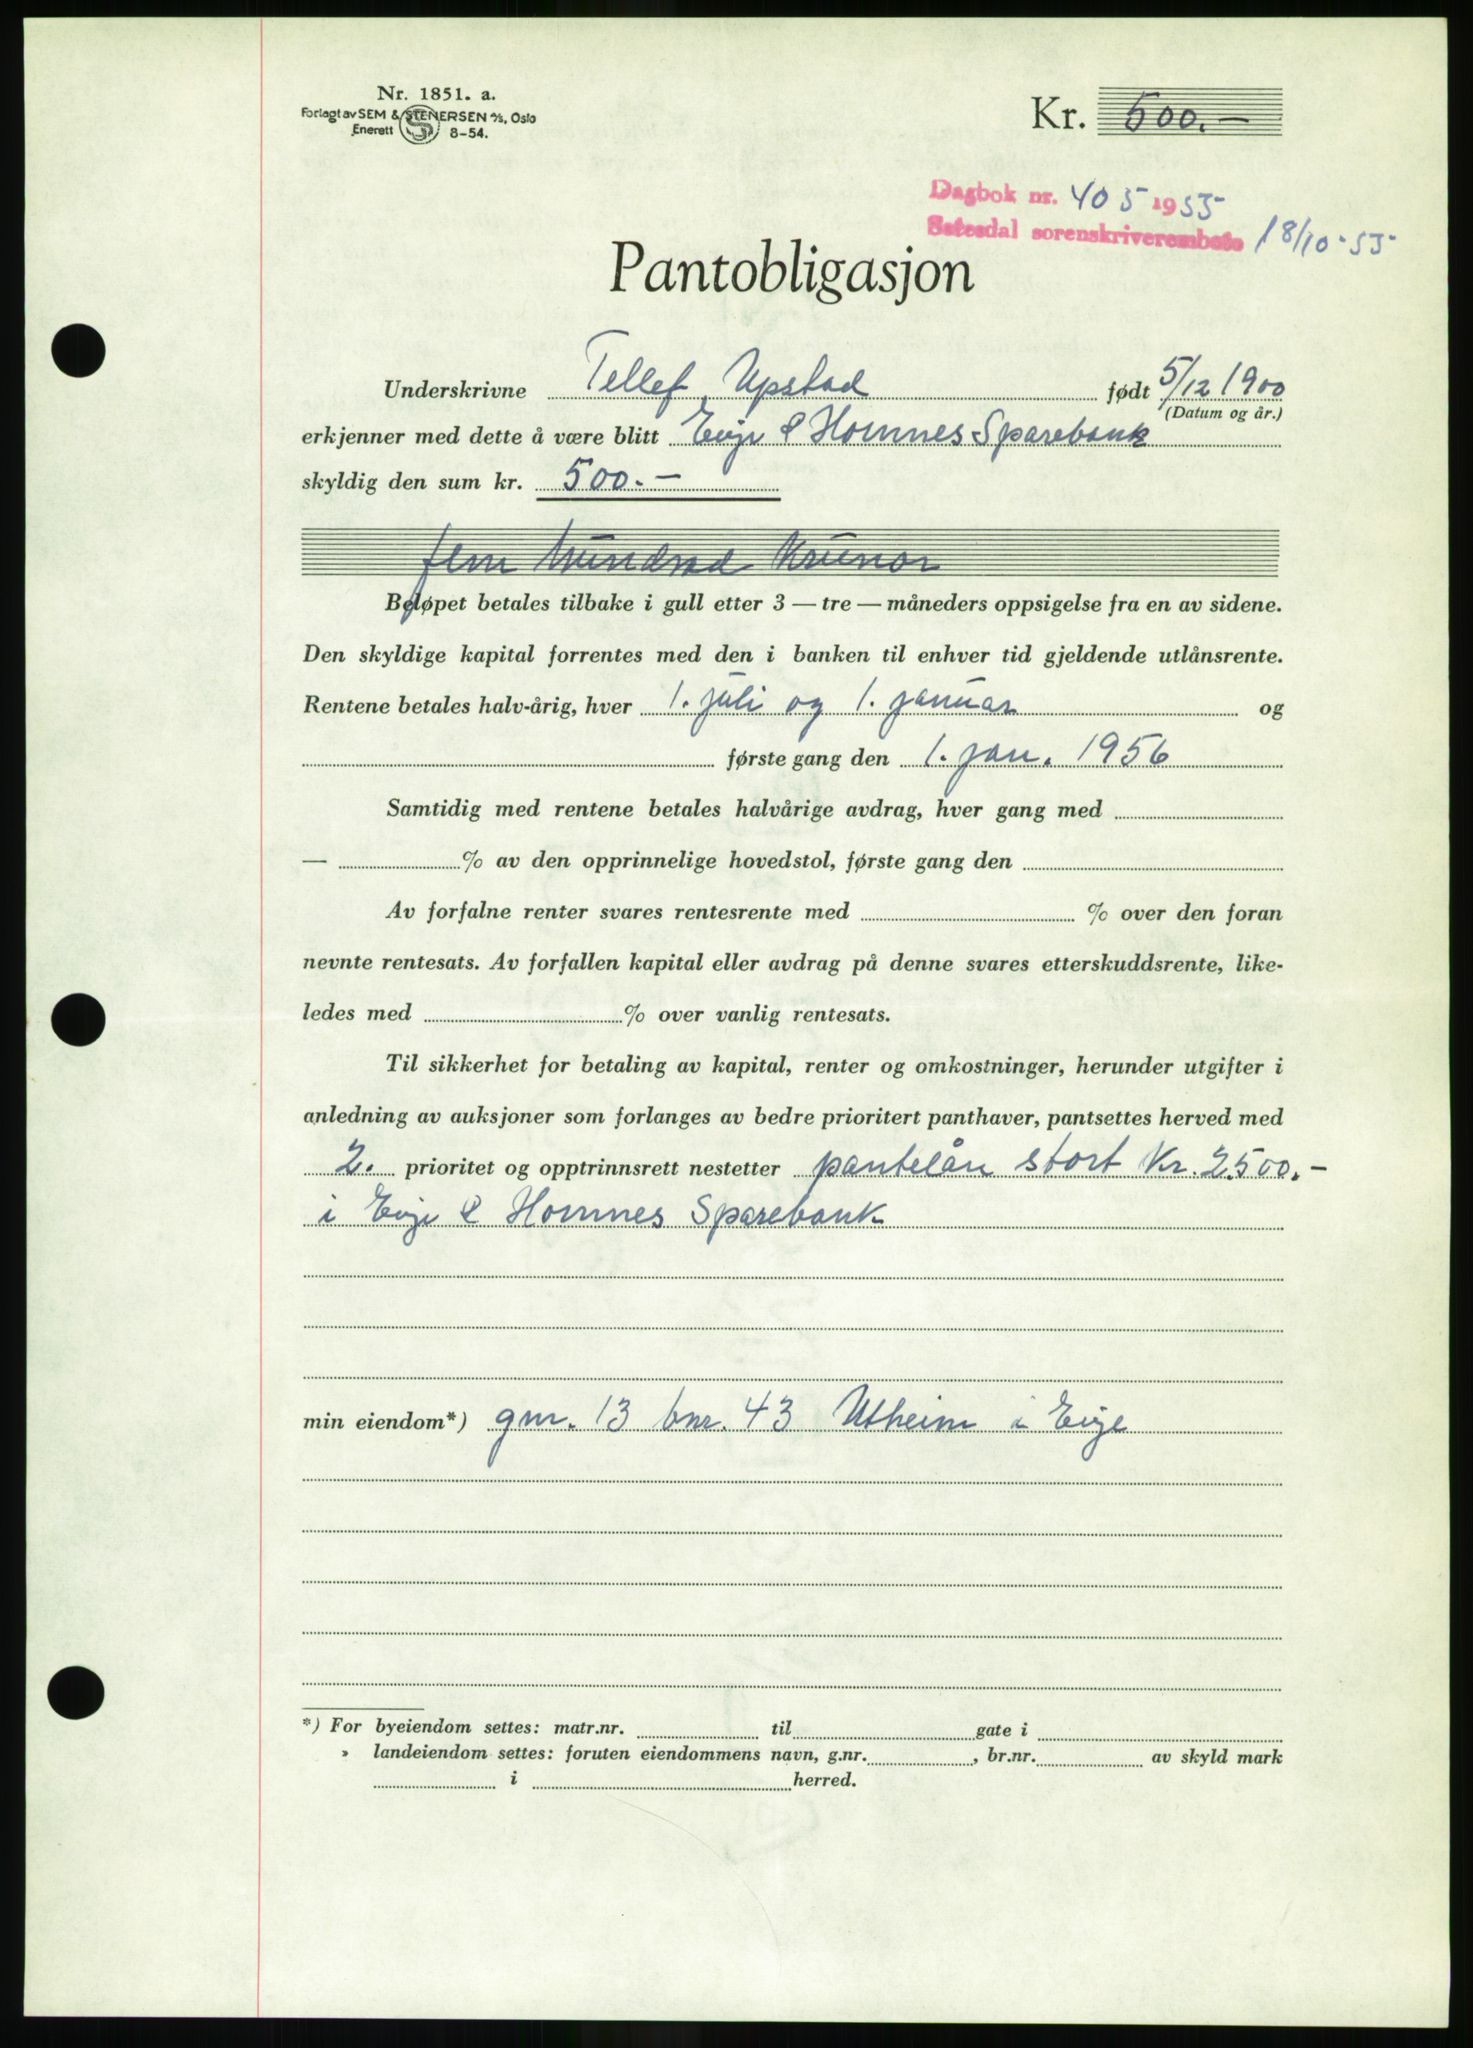 Nr. 1851. a.
Forlagt av SEM & STENERSEN A/S, Oslo
Enerett 8-54.
Kr. 500.-
Dagbok nr. 405 1955
Setesdal sorenskriverembete 18/10-55
Pantobligasjon
Underskrivne Tellef Upstad født 5/12 1900
(Datum og år.)
erkjenner med dette å være blitt Evje & Hornnes Sparebank
skyldig den sum kr. 500.-
fem hundred kroner
Beløpet betales tilbake i gull etter 3 — tre — måneders oppsigelse fra en av sidene.
Den skyldige kapital forrentes med den i banken til enhver tid gjeldende utlånsrente.
Rentene betales halv-årig, hver 1. juli og 1. januar og
første gang den 1. jan. 1956
Samtidig med rentene betales halvårige avdrag, hver gang med
— % av den opprinnelige hovedstol, første gang den
Av forfalne renter svares rentesrente med % over den foran
nevnte rentesats. Av forfallen kapital eller avdrag på denne svares etterskuddsrente, like-
ledes med % over vanlig rentesats.
Til sikkerhet for betaling av kapital, renter og omkostninger, herunder utgifter i
anledning av auksjoner som forlanges av bedre prioritert panthaver, pantsettes herved med
2. prioritet og opptrinnsrett nestetter pantelån stort kr. 2500.-
i Evje & Hornnes Sparebank
min eiendom*) gnr. 13 bnr. 43 Utheim i Evje
*) For byeiendom settes: matr.nr. til gate i
» landeiendom settes: foruten eiendommens navn, g.nr. , br.nr. av skyld mark
i herred.